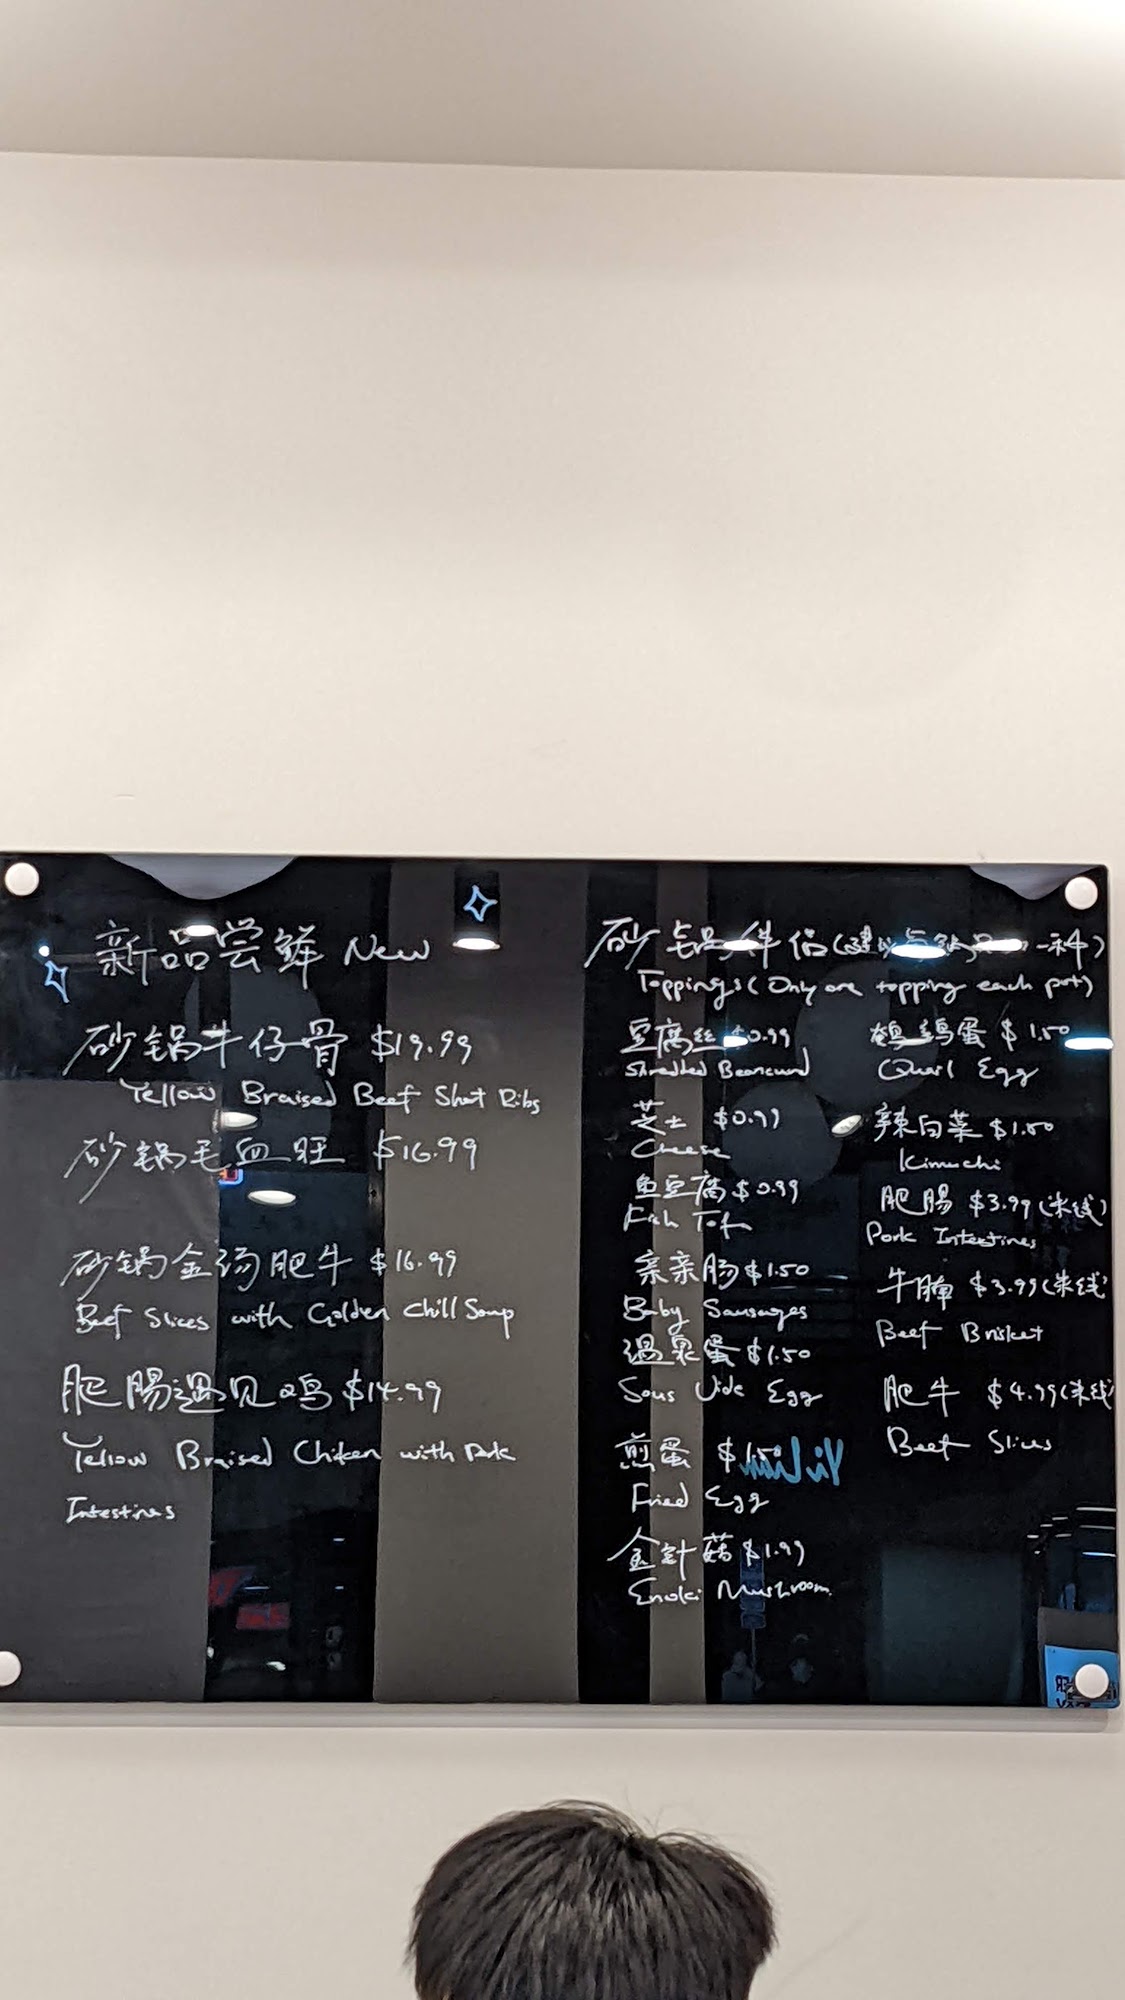 新品尝鲜 New
砂锅牛仔骨 $19.99
Yellow Braised Beef Short Ribs
砂锅毛血旺 $16.99
砂锅金汤肥牛 $16.99
Beef Slices with Golden Chill Soup
肥肠遇见鸡 $14.99
Yellow Braised Chicken with Pork
Intestines
砂锅伴侣(建议每锅 一种)
Toppings (Only one topping each pot)
豆腐丝 $0.99
Shredded Beancurd
芝士 $0.99
Cheese
鱼豆腐 $0.99
Fish Tofu
亲亲肠 $1.50
Baby Sausages
温泉蛋 $1.50
Sous Vide Egg
煎蛋 $1.50
Fried Egg
金针菇 $1.99
Enoki Mushroom
鹌鹑蛋 $1.50
Quail Egg
辣白菜 $1.50
Kimuchi
肥肠 $3.99(米线)
Pork Intestines
牛腩 $3.99(米线)
Beef Brisket
肥牛 $4.99(米线)
Beef Slices